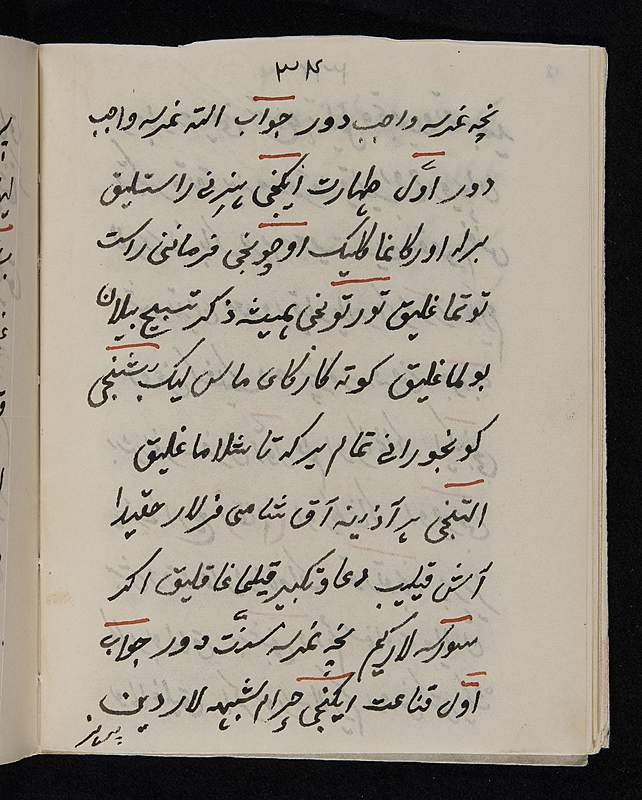 ۳۴
نچه نمرسه واجب دور جواب التە نمرسه واجب
دور اوّل طهارت ایکنجی پیرنی راستلیق
بیرله اورکاغاکلیک اوچونجی فرماننی راست
توتماغلیق تورتونجی همیشه ذکر تسبیح بیلان
بولماغلیق کوته کارکای ماس لیک بشنجی
کونجورانی تمام یرکه تاشلاماغلیق
التنجی هر آذینه آق شامی فزلار حقیدا
آش قیلیب دعا وتکبیر قیلماغاقلیق اکر
سورسه لارکیم نچه نمرسه سنّت دور جواب
اوّل قناعت ایکنجی حرام شبهه لاردین